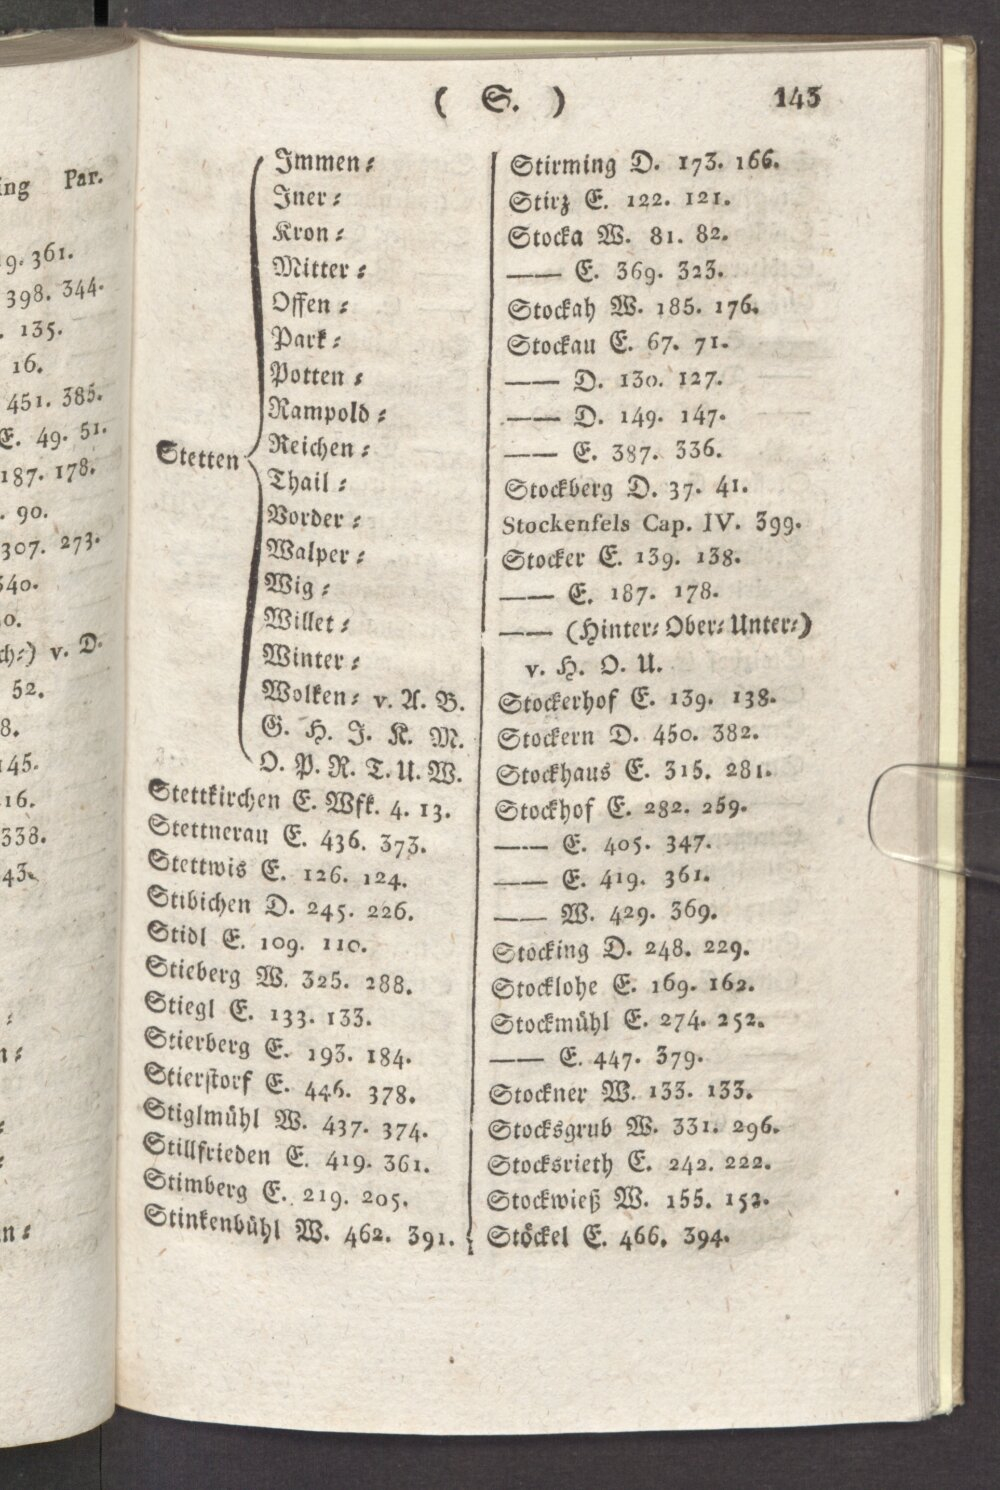 ing Par.
9. 361.
398. 344.
. 135.
16.
451. 385.
E. 49. 51.
187. 178.
. 90.
307. 273.
340.
0.
ch⸗) v. D.
52.
8.
145.
16.
338.
43.
⸗
n⸗
⸗
⸗
n⸗
( S. ) 143
Immen⸗
Iner⸗
Kron⸗
Mitter⸗
Offen⸗
Park⸗
Potten⸗
Rampold⸗
Reichen⸗
Stetten
Thail⸗
Vorder⸗
Walper⸗
Wig⸗
Willet⸗
Winter⸗
Wolken⸗ v. A. B.
G. H. J. K. M.
O. P. R. T. U. W.
Stettkirchen E. Wfk. 4. 13.
Stettnerau E. 436. 373.
Stettwis E. 126. 124.
Stibichen D. 245. 226.
Stidl E. 109. 110.
Stieberg W. 325. 288.
Stiegl E. 133. 133.
Stierberg E. 193. 184.
Stierstorf E. 446. 378.
Stiglmühl W. 437. 374.
Stillfrieden E. 419. 361.
Stimberg E. 219. 205.
Stinkenbühl W. 462. 391.
Stirming D. 173. 166.
Stirz E. 122. 121.
Stocka W. 81. 82.
—— E. 369. 323.
Stockah W. 185. 176.
Stockau E. 67. 71.
—— D. 130. 127.
—— D. 149. 147.
—— E. 387. 336.
Stockberg D. 37. 41.
Stockenfels Cap. IV. 399.
Stocker E. 139. 138.
—— E. 187. 178.
—— (Hinter⸗ Ober⸗ Unter⸗)
v. H. O. U.
Stockerhof E. 139. 138.
Stockern D. 450. 382.
Stockhaus E. 315. 281.
Stockhof E. 282. 259.
—— E. 405. 347.
—— E. 419. 361.
—— W. 429. 369.
Stocking D. 248. 229.
Stocklohe E. 169. 162.
Stockmühl E. 274. 252.
—— E. 447. 379.
Stockner W. 133. 133.
Stocksgrub W. 331. 296.
Stocksrieth E. 242. 222.
Stockwieß W. 155. 153.
Stöckel E. 466. 394.